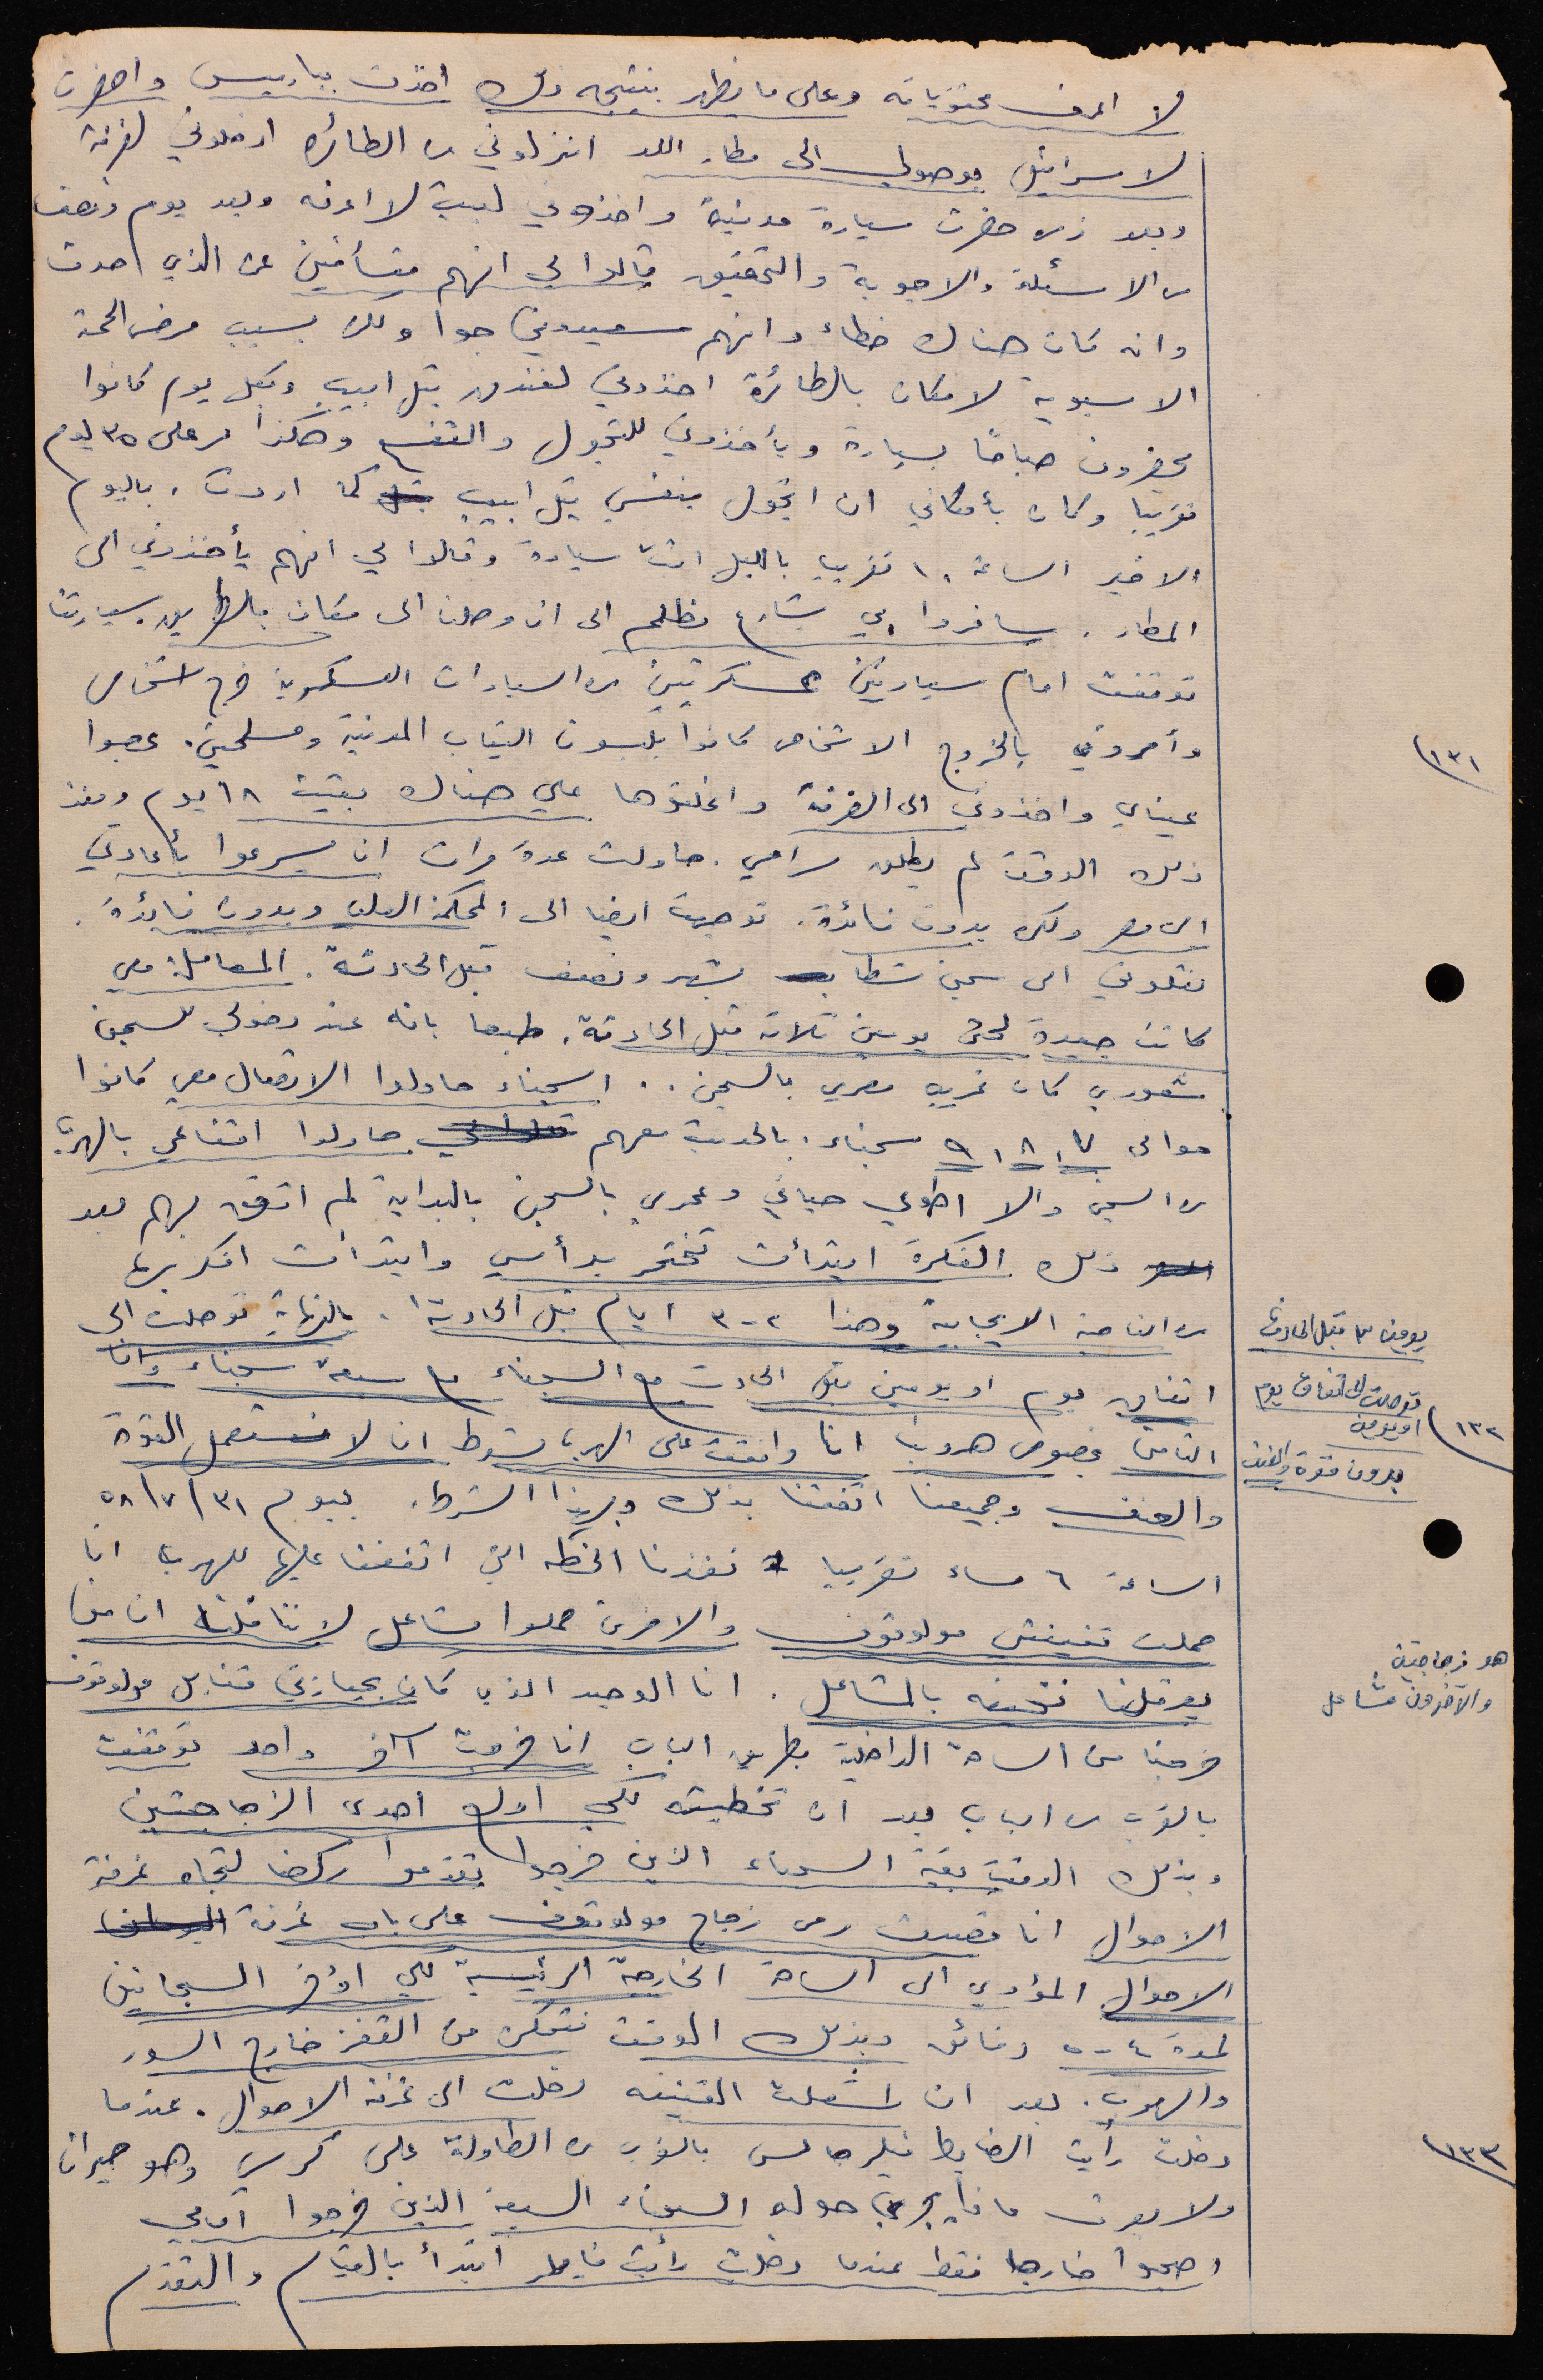 لا اعرف محتوياته وعلى ما يظهر بنتيجة ذلك اخذت بباريس واحضرت
لاسرائيل بوصولي الى مطار اللد انزلوني من الطائرة ادخلوني لغرفة
وبعد ذلك حضرت سيارة مدنية واخذوني لبيت لا اعرفه وبعد يوم ونصف
من الاسئلة والاجوبة والتحقيق قالوا لي انهم متأسفين عن الذي حدث
وانه كان هناك خطاء وانهم سيعيدوني جوا ولكن بسبب مرض الحمة
الاسيوية لا مكان بالطائرة اخذوني لفندق بتل ابيب وبكل يوم كانوا
يحضرون صباحًا بسيارة ويأخذوني للتجول والتفسح وهكذا مر علي ٣٥ يوم
تقريبا وكان بأمكاني ان اتجول بنفسي بتل ابيب كما اردت. باليوم
الاخير الساعة ١٠ تقريبا بالليل اتت سيارة وقالوا لي انهم يأخذوني الى
المطار. سافروا بي بشارع مظلم الى ان وصلنا الى مكان بالطريق سيارتنا
توقفت امام سيارتين عسكرتيين من السيارات العسكرية خرج اشخاص
وأمروني بالخروج الاشخاص كانوا يلبسون الثياب المدنية ومسلحين. عصبوا
١٣١
عيناي واخذوني الى الغرفة واغلقوها علي هناك بقيت ١٨ يوم ومنذ
ذلك الوقت لم يطلق سراحي. حاولت عدة مرات ان يسرعوا بأعادتي
الى مصر ولكن بدون فائدة. توجهت ايضا الى المحكمة العليا وبدون فائدة.
نقلوني الى سجن شطا بشهر ونصف قبل الحادثة. المعاملة معي
كانت جيدة لحتى يومين ثلاثة قبل الحادثة. طبعا بانه عند دخولي للسجن
شعوري كان غريب مصري بالسجن.. السجناء حاولوا الاتصال معي كانوا
حوالى ٧، ٨، ٩ سجناء. بالحديث معهم حاولوا اقناعي بالهرب
من السجن والا اطوي حياتي وعمري بالسجن بالبداية لم اتفق بهم بعد
ذلك الفكرة ابتدأت تختمر برأسي وابتدأت افكر بها
من الناحية الايجابية وهذا ٢-٣ ايام قبل الحادثة. بالنهاية توصلت الى
يومين ٣ قبل الحادث
اتفاق يوم او يومين قبل الحادث مع السجناء مع سبعة سجناء وانا
توصلت الى اتفاق يوم
او يومين
١٣٢
الثامن بخصوص هروبنا انا وافقت على الهرب بشرط ان لا نستعمل القوة
بدون قوة والعنف
والعنف وجميعنا اتفقنا بذلك وبهذا الشرط. بيوم ٣١/٧/٥٨
الساعة ٦ مساء تقريبا نفذنا الخطة التي اتفقنا عليها للهرب انا
حملت قنينتي مولوتوف والاخرين حملوا مشاعل لاننا قلنا ان من
هو زجاجتين
يعرقلنا نخيفه بالمشاعل. انا الوحيد الذي كان بحيازتي قنابل مولوتوف
والآخرون مشاعل
خرجنا من الساحة الداخلية بطريق الباب انا خرجت آخر واحد توقفت
بالقرب من الباب بعد ان تخطيته لكي اولع احدى الزجاجتين
وبذلك الوقت بقية السجناء الذين خرجوا تقدموا ركضا لتجاه غرفة
الاحوال انا قصدت رمي زجاج مولوتوف على باب غرفة
الاحوال المؤدي الى الساحة الخارجة الرئيسية لكي اؤخر السجانين
لمدة ٤-٥ دقائق وبذلك الوقت نتمكن من القفز خارج السور
والهرب. بعد ان اشعلت القنينة دخلت الى غرفة الاحوال. عندما
دخلت رأيت الضابط فيلر جالس بالقرب من الطاولة على كرسي وهو حيران
١٣٣
ولا يعرف ماذا يجري حوله السجناء السبعة الذين خرجوا امامي
اصبحوا خارجا فقط عندما دخلت رأيت فايلر ابتدأ بالقيام والتقدم